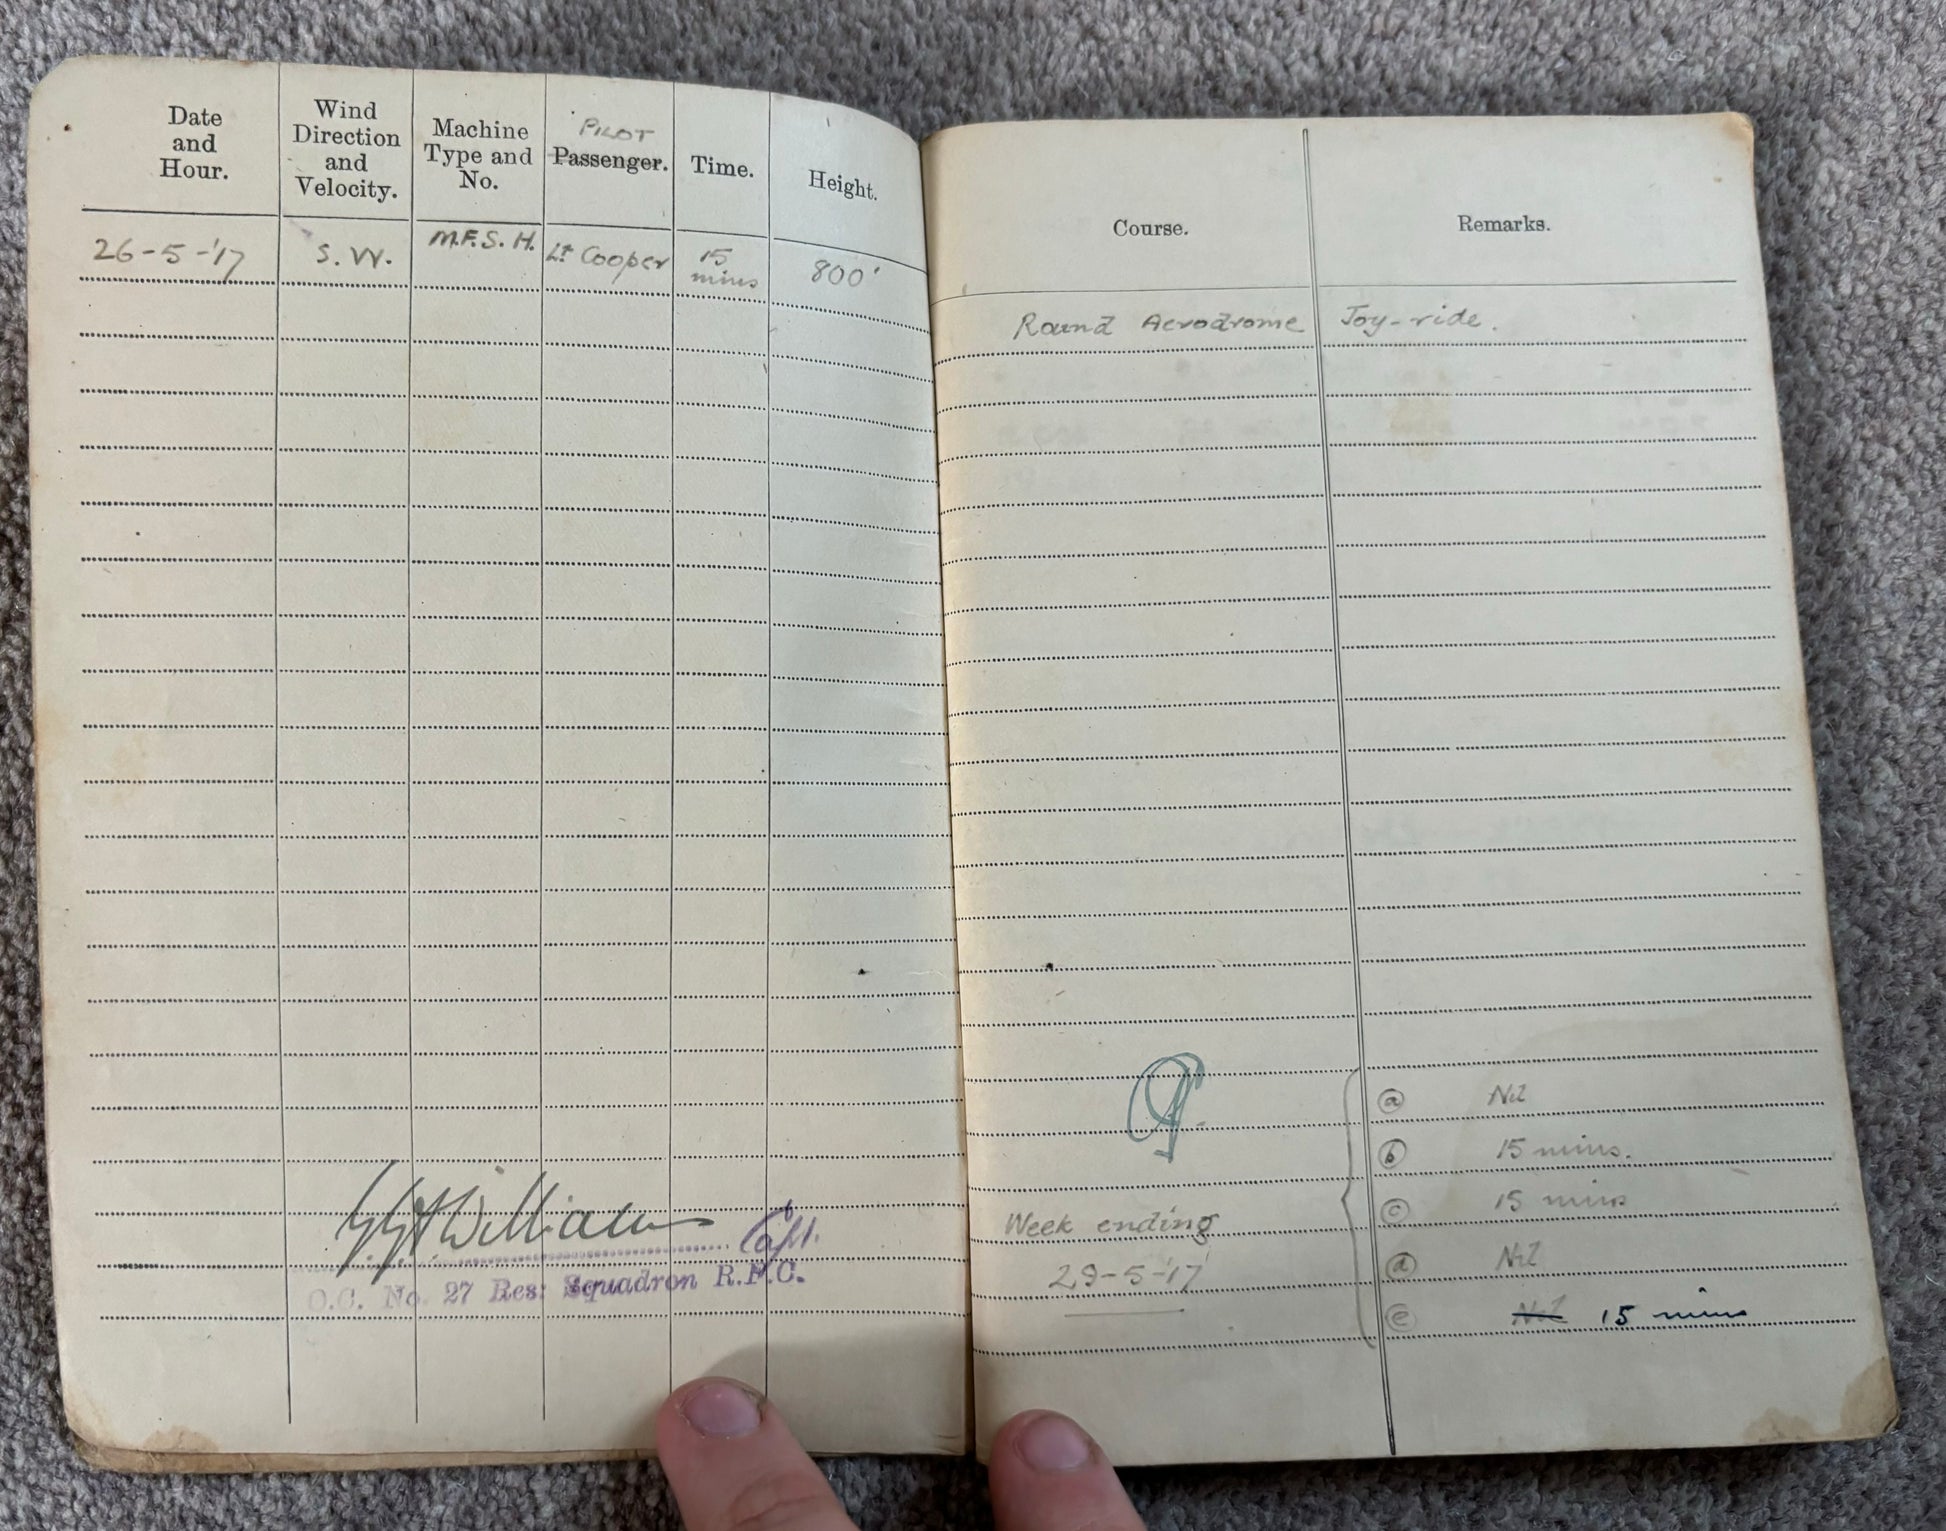 Date and Hour.
Wind Direction and Velocity.
Machine Type and No.
PILOT
Passenger.
Time.
Height.
26-5-'17
S. W.
M.F.S.H.
Lt Cooper
15 mins
800'
Williams Capt.
O.C. No. 27 Res: Squadron R.F.C.
Course.
Remarks.
Round Aerodrome
Joy-ride.
Week ending
29-5-'17
a Nil
b 15 mins.
c 15 mins
d Nil
e Nil 15 mins